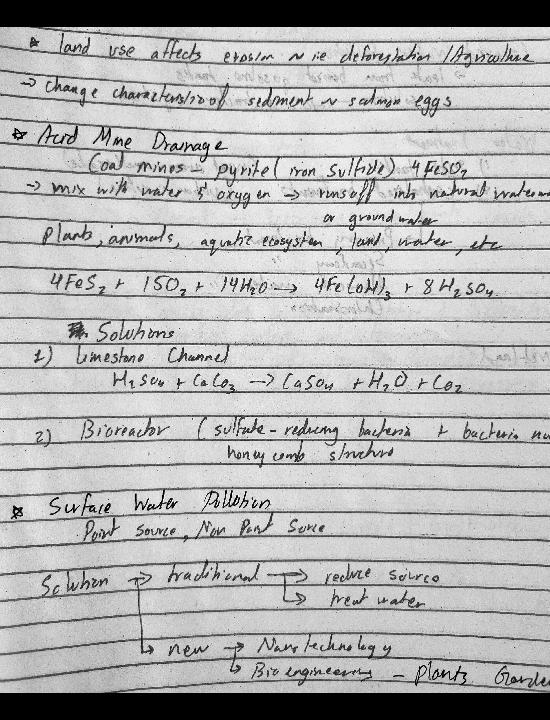 * land use affects erosion ~ ie deforestation /Agriculture
→ change characteristic of sediment ~ salmon eggs
* Acid Mine Drainage
Coal mines → pyrite (iron sulfide) 4FeSO₂
→ mix with water & oxygen → runsoff into natural
or ground water
plants, animals, aquatic ecosystem, land water, etc
4FeS₂ + 15O₂ + 14H₂O → 4Fe(OH)₃ + 8H₂SO₄
Solutions
1) Limestone Channel
H₂SO₄ + CaCO₃ → CaSO₄ + H₂O + CO₂
2) Bioreactor (sulfate-reducing bacteria + bacteria
honey comb structure
* Surface Water Pollution
Point Source, Non Point Source
Solution → traditional → reduce source
→ treat water
→ new → Nanotechnology
→ Bioengineering - Plants